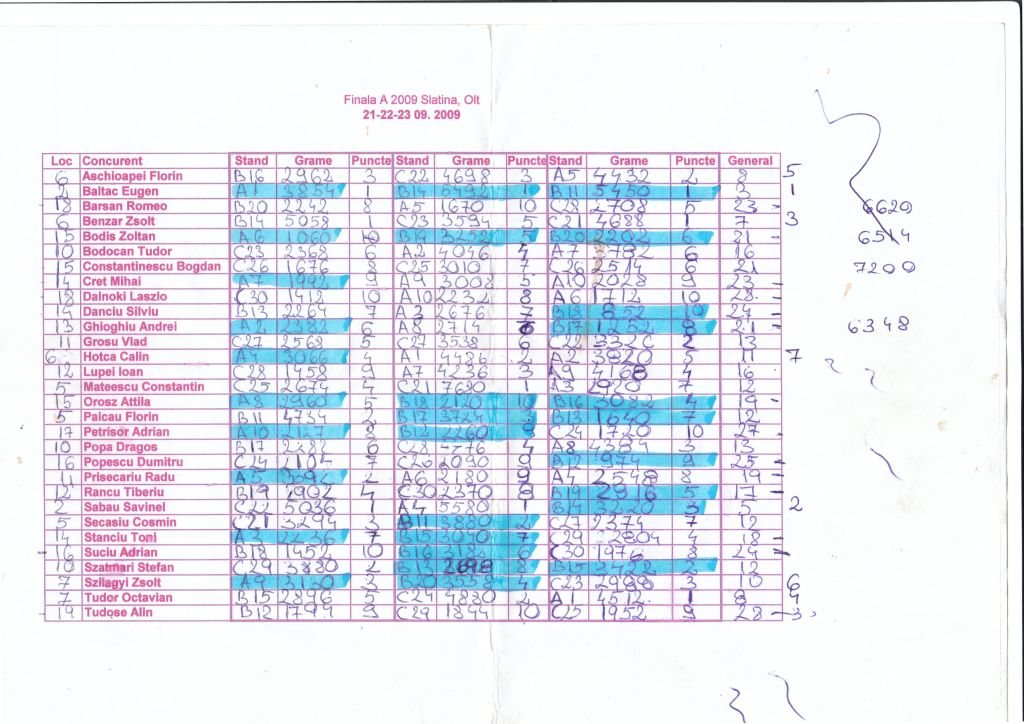 Finala A 2009 Slatina, Olt
21-22-23 09. 2009
Loc Concurent Stand Grame Puncte Stand Grame Puncte Stand Grame Puncte General
6 Aschioapei Florin B16 2962 3 C22 4698 3 A5 4432 2 8 5
2 Baltac Eugen A1 3854 1 B14 5492 1 B11 5450 1 3 1
18 Barsan Romeo B20 2242 8 A5 1670 10 C28 2708 5 23
6 Benzar Zsolt B14 5058 1 C23 3594 5 C21 4688 1 7 3
13 Bodis Zoltan A6 1060 10 B19 3252 5 B20 2202 6 21
10 Bodocan Tudor C23 2368 6 A2 4046 4 A7 3782 6 16
15 Constantinescu Bogdan C26 1676 8 C25 3010 7 C26 2514 6 21
14 Cret Mihai A7 1992 9 A9 3008 5 A10 2028 9 23
18 Dalnoki Laszlo C30 1412 10 A10 2232 8 A6 1712 10 28
14 Danciu Silviu B13 2264 7 A3 2676 7 B18 852 10 24
13 Ghioghiu Andrei A2 2382 6 A8 2714 6 B17 1252 8 21
11 Grosu Vlad C27 2568 5 C27 3538 6 C22 3326 2 13
6 Hotca Calin A4 3066 4 A1 4486 2 A2 3820 5 11 7
12 Lupei Ioan C28 1458 9 A7 4236 3 A9 4168 4 16
5 Mateescu Constantin C25 2674 4 C21 7690 1 A3 2920 7 12
15 Orosz Attila A8 2960 5 B18 2120 10 B16 3082 4 19
5 Palcau Florin B11 4734 2 B17 3724 3 B13 1640 7 12
17 Petrisor Adrian A10 2127 8 B12 2260 9 C24 1720 10 27
10 Popa Dragos B17 2288 6 C28 4 A8 4384 3 13
16 Popescu Dumitru C24 1704 7 C26 2090 9 B12 974 9 25
11 Prisecariu Radu A5 3392 2 A6 2180 9 A4 2548 8 19
12 Rancu Tiberiu B19 2902 4 C30 2370 8 B19 2916 5 17
2 Sabau Savinel C22 5036 1 A4 5580 1 B14 3220 3 5 2
5 Secasiu Cosmin C21 3294 3 B11 3880 2 C27 2374 7 12
14 Stanciu Toni A3 2236 7 B15 3090 7 C29 2804 4 18
16 Suciu Adrian B18 1452 10 B16 3182 6 C30 1976 8 24
10 Szatmari Stefan C29 3880 2 B13 2698 8 B15 3422 2 12
7 Szilagyi Zsolt A9 3130 3 B20 3558 4 C23 2998 3 10 6
7 Tudor Octavian B15 2896 5 C24 4880 2 A1 4512 1 8 4
19 Tudose Alin B12 1794 9 C29 1844 10 C25 1952 9 28
6620
6514
7200
6348